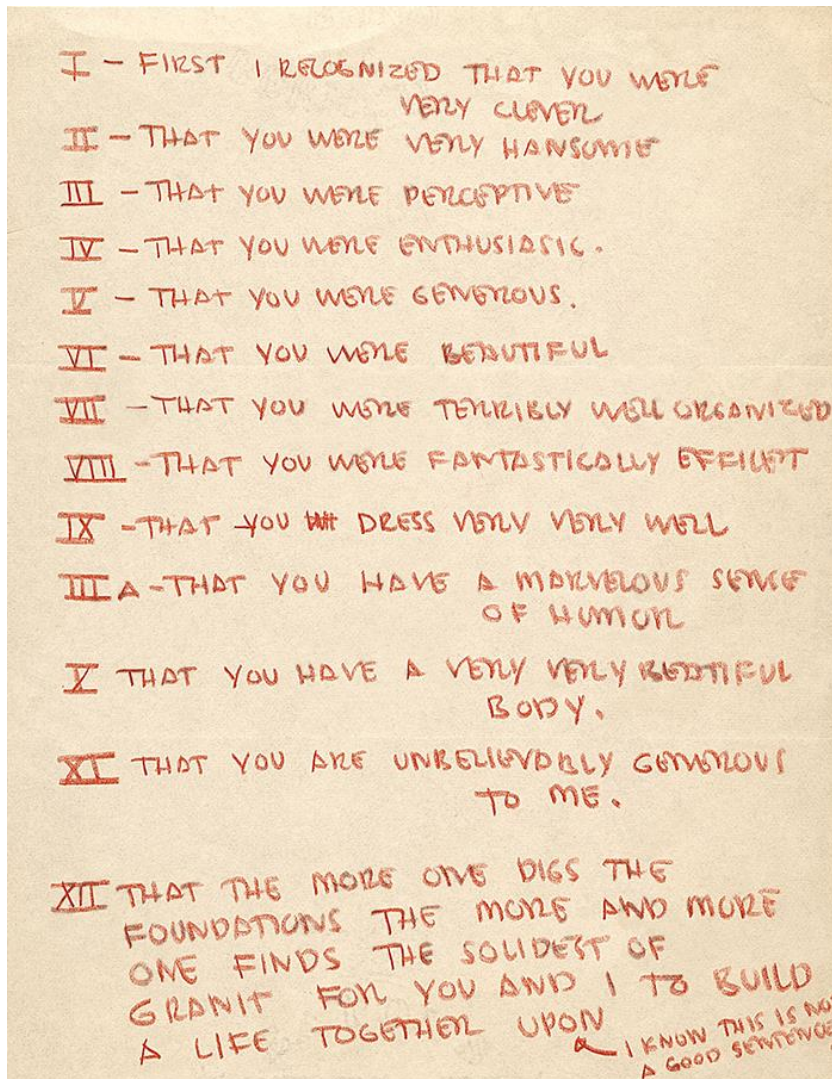 I – FIRST I RECOGNIZED THAT YOU WERE
VERY CLEVER
II – THAT YOU WERE VERY HANSOME
III – THAT YOU WERE PERCEPTIVE
IV – THAT YOU WERE ENTHUSIASIC.
V – THAT YOU WERE GENEROUS.
VI – THAT YOU WERE BEAUTIFUL
VII – THAT YOU WERE TERRIBLY WELL ORGANIZED
VIII – THAT YOU WERE FANTASTICALLY EFFICIET
IX – THAT YOU DRESS VERY VERY WELL
III A – THAT YOU HAVE A MARVELOUS SENSE
OF HUMOR
X THAT YOU HAVE A VERY VERY BEATIFUL
BODY.
XI THAT YOU ARE UNBELIEVABLY GENEROUS
TO ME.
XII THAT THE MORE ONE DIGS THE
FOUNDATIONS THE MORE AND MORE
ONE FINDS THE SOLIDEST OF
GRANIT FOR YOU AND I TO BUILD
A LIFE TOGETHER UPON
I KNOW THIS IS NOT
A GOOD SENTENCE